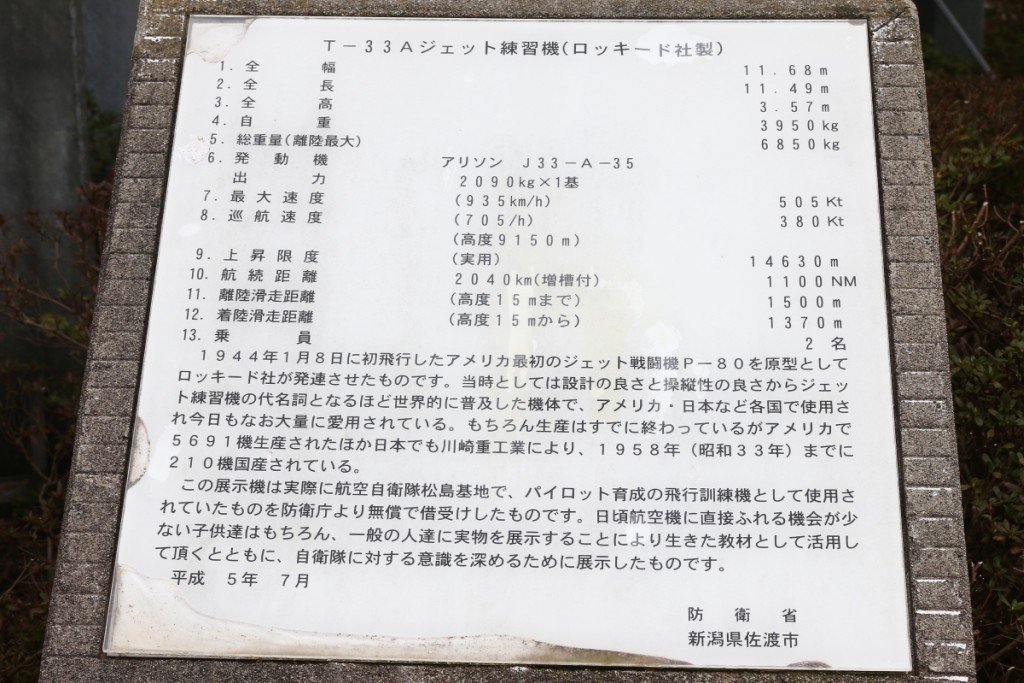 T－33Aジェット練習機(ロッキード社製)
1. 全幅 11.68m
2. 全長 11.49m
3. 全高 3.57m
4. 自重 3950kg
5. 総重量(離陸最大) 6850kg
6. 発動機 アリソン J33－A－35
出力 2090kg×1基
7. 最大速度 (935km/h) 505Kt
8. 巡航速度 (705/h) 380Kt
(高度9150m)
9. 上昇限度 (実用) 14630m
10. 航続距離 2040km(増槽付) 1100NM
11. 離陸滑走距離 (高度15mまで) 1500m
12. 着陸滑走距離 (高度15mから) 1370m
13. 乗員 2名
1944年1月8日に初飛行したアメリカ最初のジェット戦闘機P－80を原型として
ロッキード社が発達させたものです。当時としては設計の良さと操縦性の良さからジェッ
ト練習機の代名詞となるほど世界的に普及した機体で、アメリカ・日本など各国で使用さ
れ今日もなお大量に愛用されている。もちろん生産はすでに終わっているがアメリカで
5691機生産されたほか日本でも川崎重工業により、1958年（昭和33年）までに
210機国産されている。
この展示機は実際に航空自衛隊松島基地で、パイロット育成の飛行訓練機として使用さ
れていたものを防衛庁より無償で借受けしたものです。日頃航空機に直接ふれる機会が少
ない子供達はもちろん、一般の人達に実物を展示することにより生きた教材として活用し
て頂くとともに、自衛隊に対する意識を深めるために展示したものです。
平成 5年 7月
防衛省
新潟県佐渡市